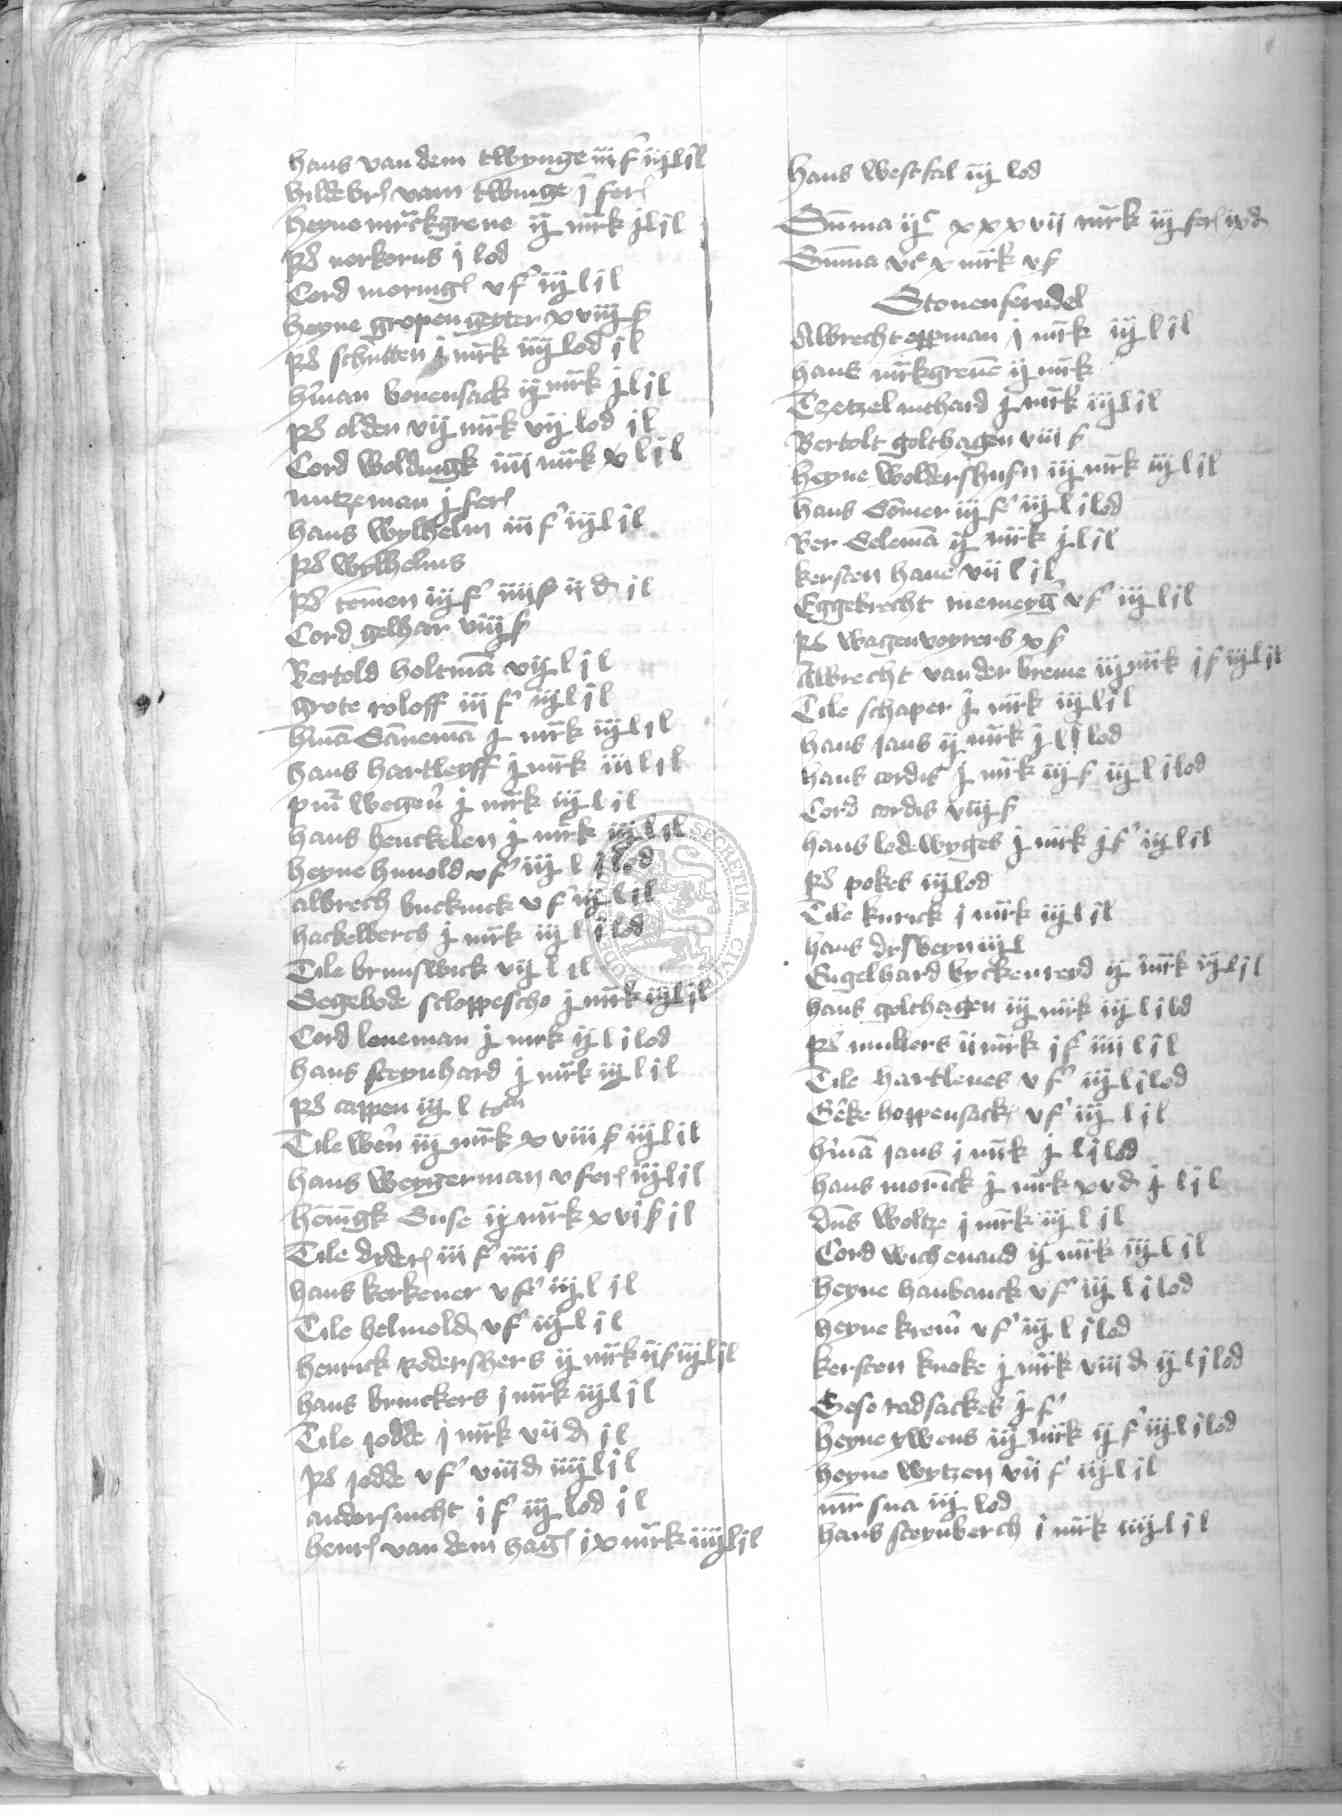 hans van dem twynge iij f' iij l j l
hildebr' vam twinge j fer'
heyne mrckgreue ij mrk j l j l
Rel' norkorns j lod
Cord moring' v f' iij l j l
heyne gropengeyter xviij s
Rel' schutten j mrk iiij lod j l
h'man bouensack ij mrk j l j l
Rel' olden vij mrk vij lod j l
Cord woldingk iiij mrk x l j l
mutzeman j fer'
hans wylhelm iij f' iij l j l
Rel' wylhelms
Rel' tomen iij f' iiij s ij d j l
Cord gelhar viij s
Bertold holtma vij l j l
grote roloff iij f' iij l j l
h'ma Sanema j mrk iij l j l
hans hartleyff j mrk iij l j l
wegen' j mrk iij l j l
hans henckelen j mrk iij l j l
heyne hunold v f' iij l j lod
albrech buckinck v f' iij l j l
hackelberes j mrk iij l j lod
Tile brunswick vij l j l
Segebode scloppescho j mrk iij l j l
Cord loneman j mrk ij l j lod
hans steynhard j mrk iij l j l
Rel' cappen iij l
Tile wen' iij mrk xviij s iij l j l
hans weygerman v fer' iij l j l
henigk Suse ij mrk xvj s j l
Tile dyder' iij f' iiij s
hans kerkener v f' iij l j l
Tile helmold v f' iij l j l
henrick rodershers ij mrk ij s iij l j l
hans brinckers j mrk iij l j l
Tile jodde j mrk vij d j l
Rel' jodde v f' viij d iiij l j l
andersucht j f' iij lod j l
henr' van dem hag' ix mrk iiij l j l
hans westfal iij lod
Suma ij c xxxvij mrk iij fer' ix d
Suma v c x mrk v s
Stouenferndel
Albrecht oppman j mrk iij l j l
hans mrkgreue ij mrk
Tzetzel mthard j mrk iij l j l
Bertolt golthagen viij s
heyne woldershusen iij mrk iij l j l
hans Somer iij f' iij l j lod
Ber Selema ij mrk j l j l
kersten haue vij l j l
Eggebrecht nemeyg' v f' iij l j l
Rel' wagenvoyrers x s
Albrecht van der breme iij mrk j s iij l j l
Tile schaper j mrk iij l j l
hans jans ij mrk j l j lod
hans cordis j mrk iij s iij l j lod
Cord cordis viij s
hans lodewyges j mrk j f' iij l j l
Rel' pokes iij lod
Tile knrick j mrk iij l j l
hans drsweyn iij l
Engelhard byckenrerd ij mrk iij l j l
hans golthagen iij mrk iij l j lod
Rel' mullers ij mrk j f' iiij l j l
Tile hartleues v f' iij l j lod
Geke hoppensack' v f' iij l j l
h'ma jans j mrk j l j lod
hans morick j mrk xv d j l j l
dns woltze j mrk iij l j l
Cord wichenand ij mrk iij l j l
heyne hanbanck v f' iij l j lod
heyne krem' v f' iij l j lod
kersten knoke j mrk viij d ij l j lod
Gese radsackes j f'
heyne ywens iij mrk ij f' iij l j lod
heyne wytzen vij f' iij l j l
iij lod
hans steynberch j mrk iiij l j l